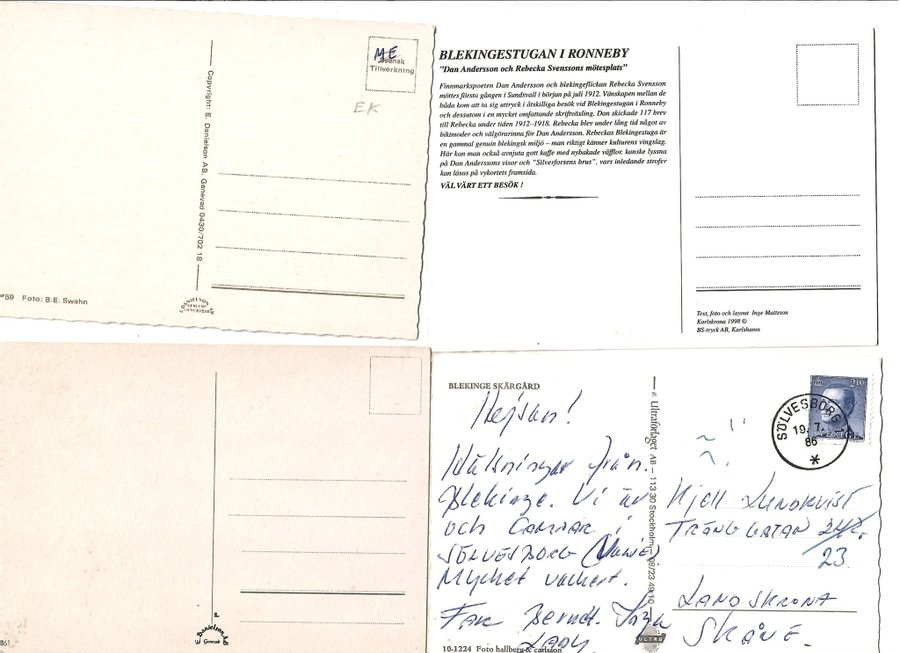 ME
Svensk
Tillverkning
EK
Copyright: E. Danielson AB, Genevad 0430/702 18
59 Foto: B.E. Swahn
BLEKINGESTUGAN I RONNEBY
"Dan Andersson och Rebecka Svenssons mötesplats"
Finnmarkspoeten Dan Andersson och blekingeflickan Rebecka Svensson
möttes första gången i Sundsvall i början på juli 1912. Vänskapen mellan de
båda kom att ta sig uttryck i åtskilliga besök vid Blekingestugan i Ronneby
och dessutom i en mycket omfattande skriftväxling. Dan skickade 117 brev
till Rebecka under tiden 1912-1918. Rebecka blev under lång tid något av
biktmoder och välgörarinna för Dan Andersson. Rebeckas Blekingestuga är
en gammal genuin blekingsk miljö – man riktigt känner kulturens vingslag.
Här kan man också avnjuta gott kaffe med nybakade våfflor, kanske lyssna
på Dan Anderssons visor och "Silverforsens brus", vars inledande strofer
kan läsas på vykortets framsida.
VÄL VÄRT ETT BESÖK !
Text, foto och layout Inge Mattsson
Karlskrona 1998 ©
BS-tryck AB, Karlshamn
E. Danielson AB
Genevad
BLEKINGE SKÄRGÅRD
Hejsan!
Hälsningar från
Blekinge. Vi är
och CAMPAR i
SÖLVESBORG
Mycket vackert.
Berndt.
10-1224 Foto hallberg & carlsson
Ultraförlaget AB – 113 30 Stockholm – 08/23 49 10
ULTRA
SÖLVESBORG 1
19.7.
86
2.10
Kjell LUNDKVIST
TRÄNGGATAN
23
LANDSKRONA
SKÅNE